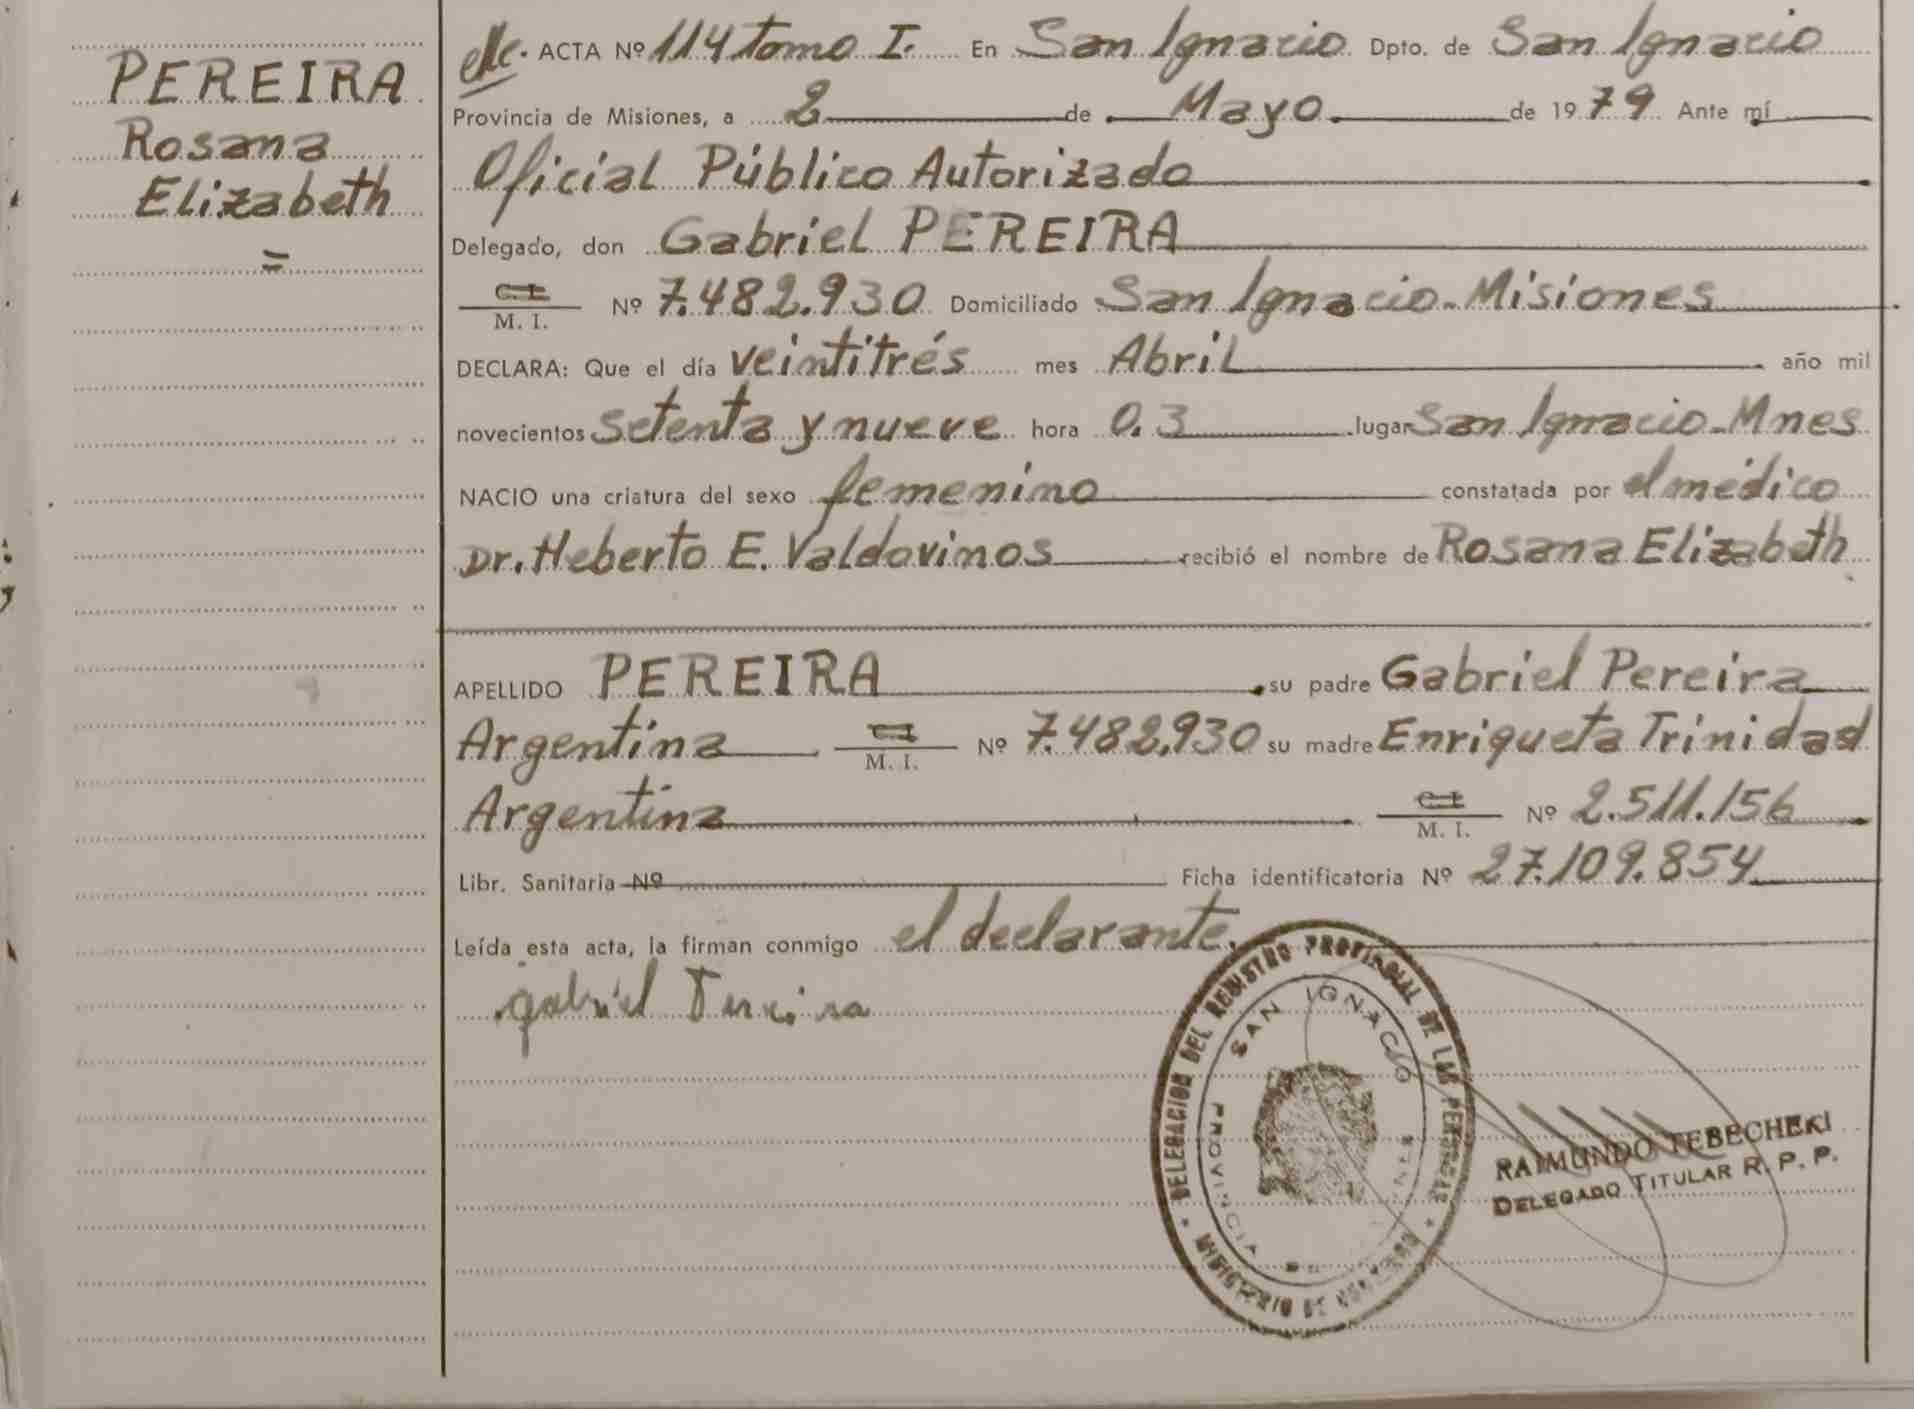 PEREIRA
Rosana
Elizabeth
=
ACTA Nº 114 tomo I. En San Ignacio Dpto. de San Ignacio
Provincia de Misiones, a 2 de Mayo de 1979 Ante mí
Oficial Público Autorizado
Delegado, don Gabriel PEREIRA
C. I.
M. I. Nº 7.482.930 Domiciliado San Ignacio-Misiones
DECLARA: Que el día veintitrés mes Abril año mil
novecientos setenta y nueve hora 0.3 lugar San Ignacio-Mnes
NACIO una criatura del sexo femenino constatada por el médico
Dr. Heberto E. Valdovinos recibió el nombre de Rosana Elizabeth
APELLIDO PEREIRA su padre Gabriel Pereira
Argentina C. I. M. I. Nº 7.482.930 su madre Enriqueta Trinidad
Argentina C. I. M. I. Nº 2.511.156
Libr. Sanitaria Nº Ficha identificatoria Nº 27.109.854
Leída esta acta, la firman conmigo el declarante.
gabriel Pereira
DELEGACION DEL REGISTRO PROVINCIAL DE LAS PERSONAS
SAN IGNACIO
PROVINCIA DE
MINISTERIO DE GOBIERNO
RAIMUNDO TEBECHEKI
DELEGADO TITULAR R. P. P.